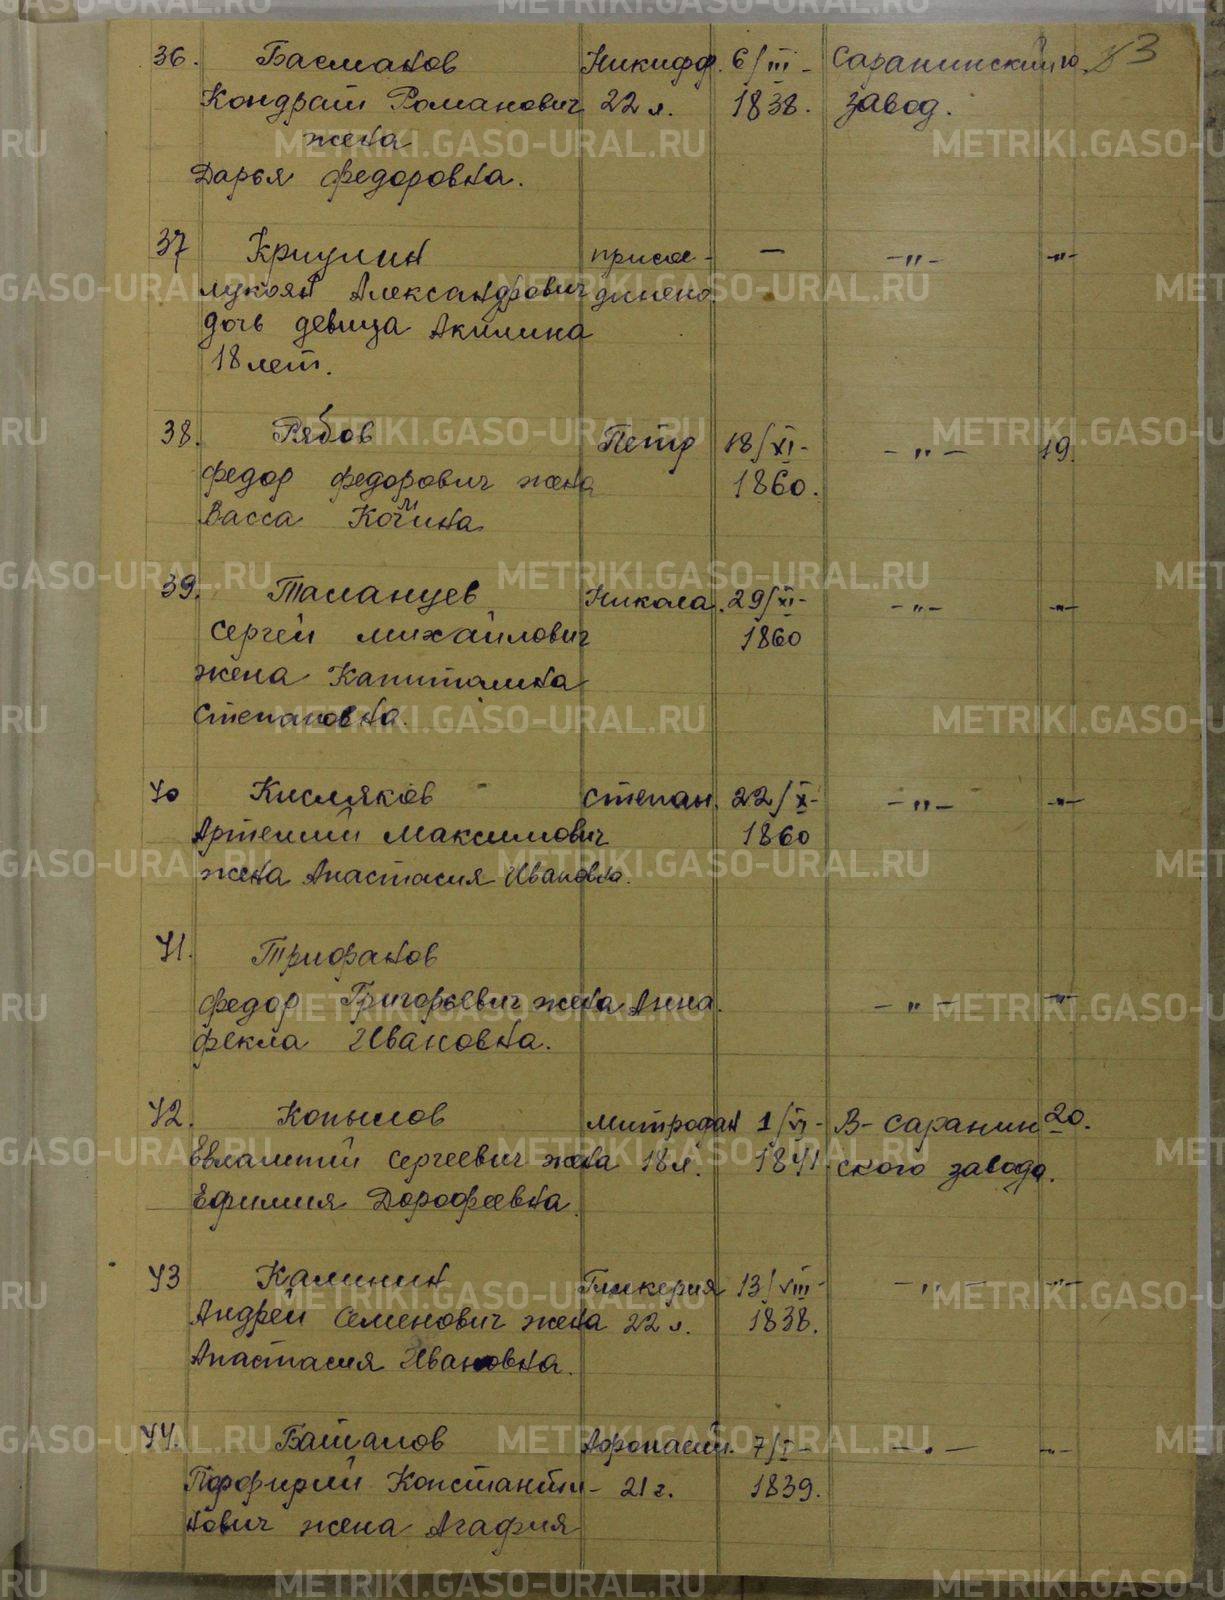 36. Басманов Никифр. 6/III- Саранинский ю. 43
Кондрат Романович 22 л. 1838. завод.
жена
Дарья Федоровна.
37 Криулин присое- — -"- -"-
Лукоян Александрович динено.
дочь девица Акилина
18 лет.
38. Рябов Петр 18/XI- -"- 19.
Федор Федорович жена 1860.
Васса
39. Таланцев Никола. 29/XI- -"- -"-
Сергей Михайлович 1860
жена Капиталина
Степановна.
40 Кисляков Степан. 22/X- -"- -"-
Артемий Максимович 1860
жена Анастасия Ивановна.
41. Трифанов
Федор Григорьевич жена Анна. -"- -"-
Фекла Ивановна.
42. Копылов Митрофан 1/VI- В-Саранин 20.
Евлампий Сергеевич жена 18 л. 1841. ского завода.
Ефимия Дорофеевна.
43 Калинин Гликерия 13/VIII- -"- -"-
Андрей Семенович жена 22 л. 1838.
Анастасия Ивановна.
44. Баталов Афонасий. 7/I- -"- -"-
Порфирий Константи- 21 г. 1839.
нович жена Агафия
METRIKI.GASO-URAL.RU